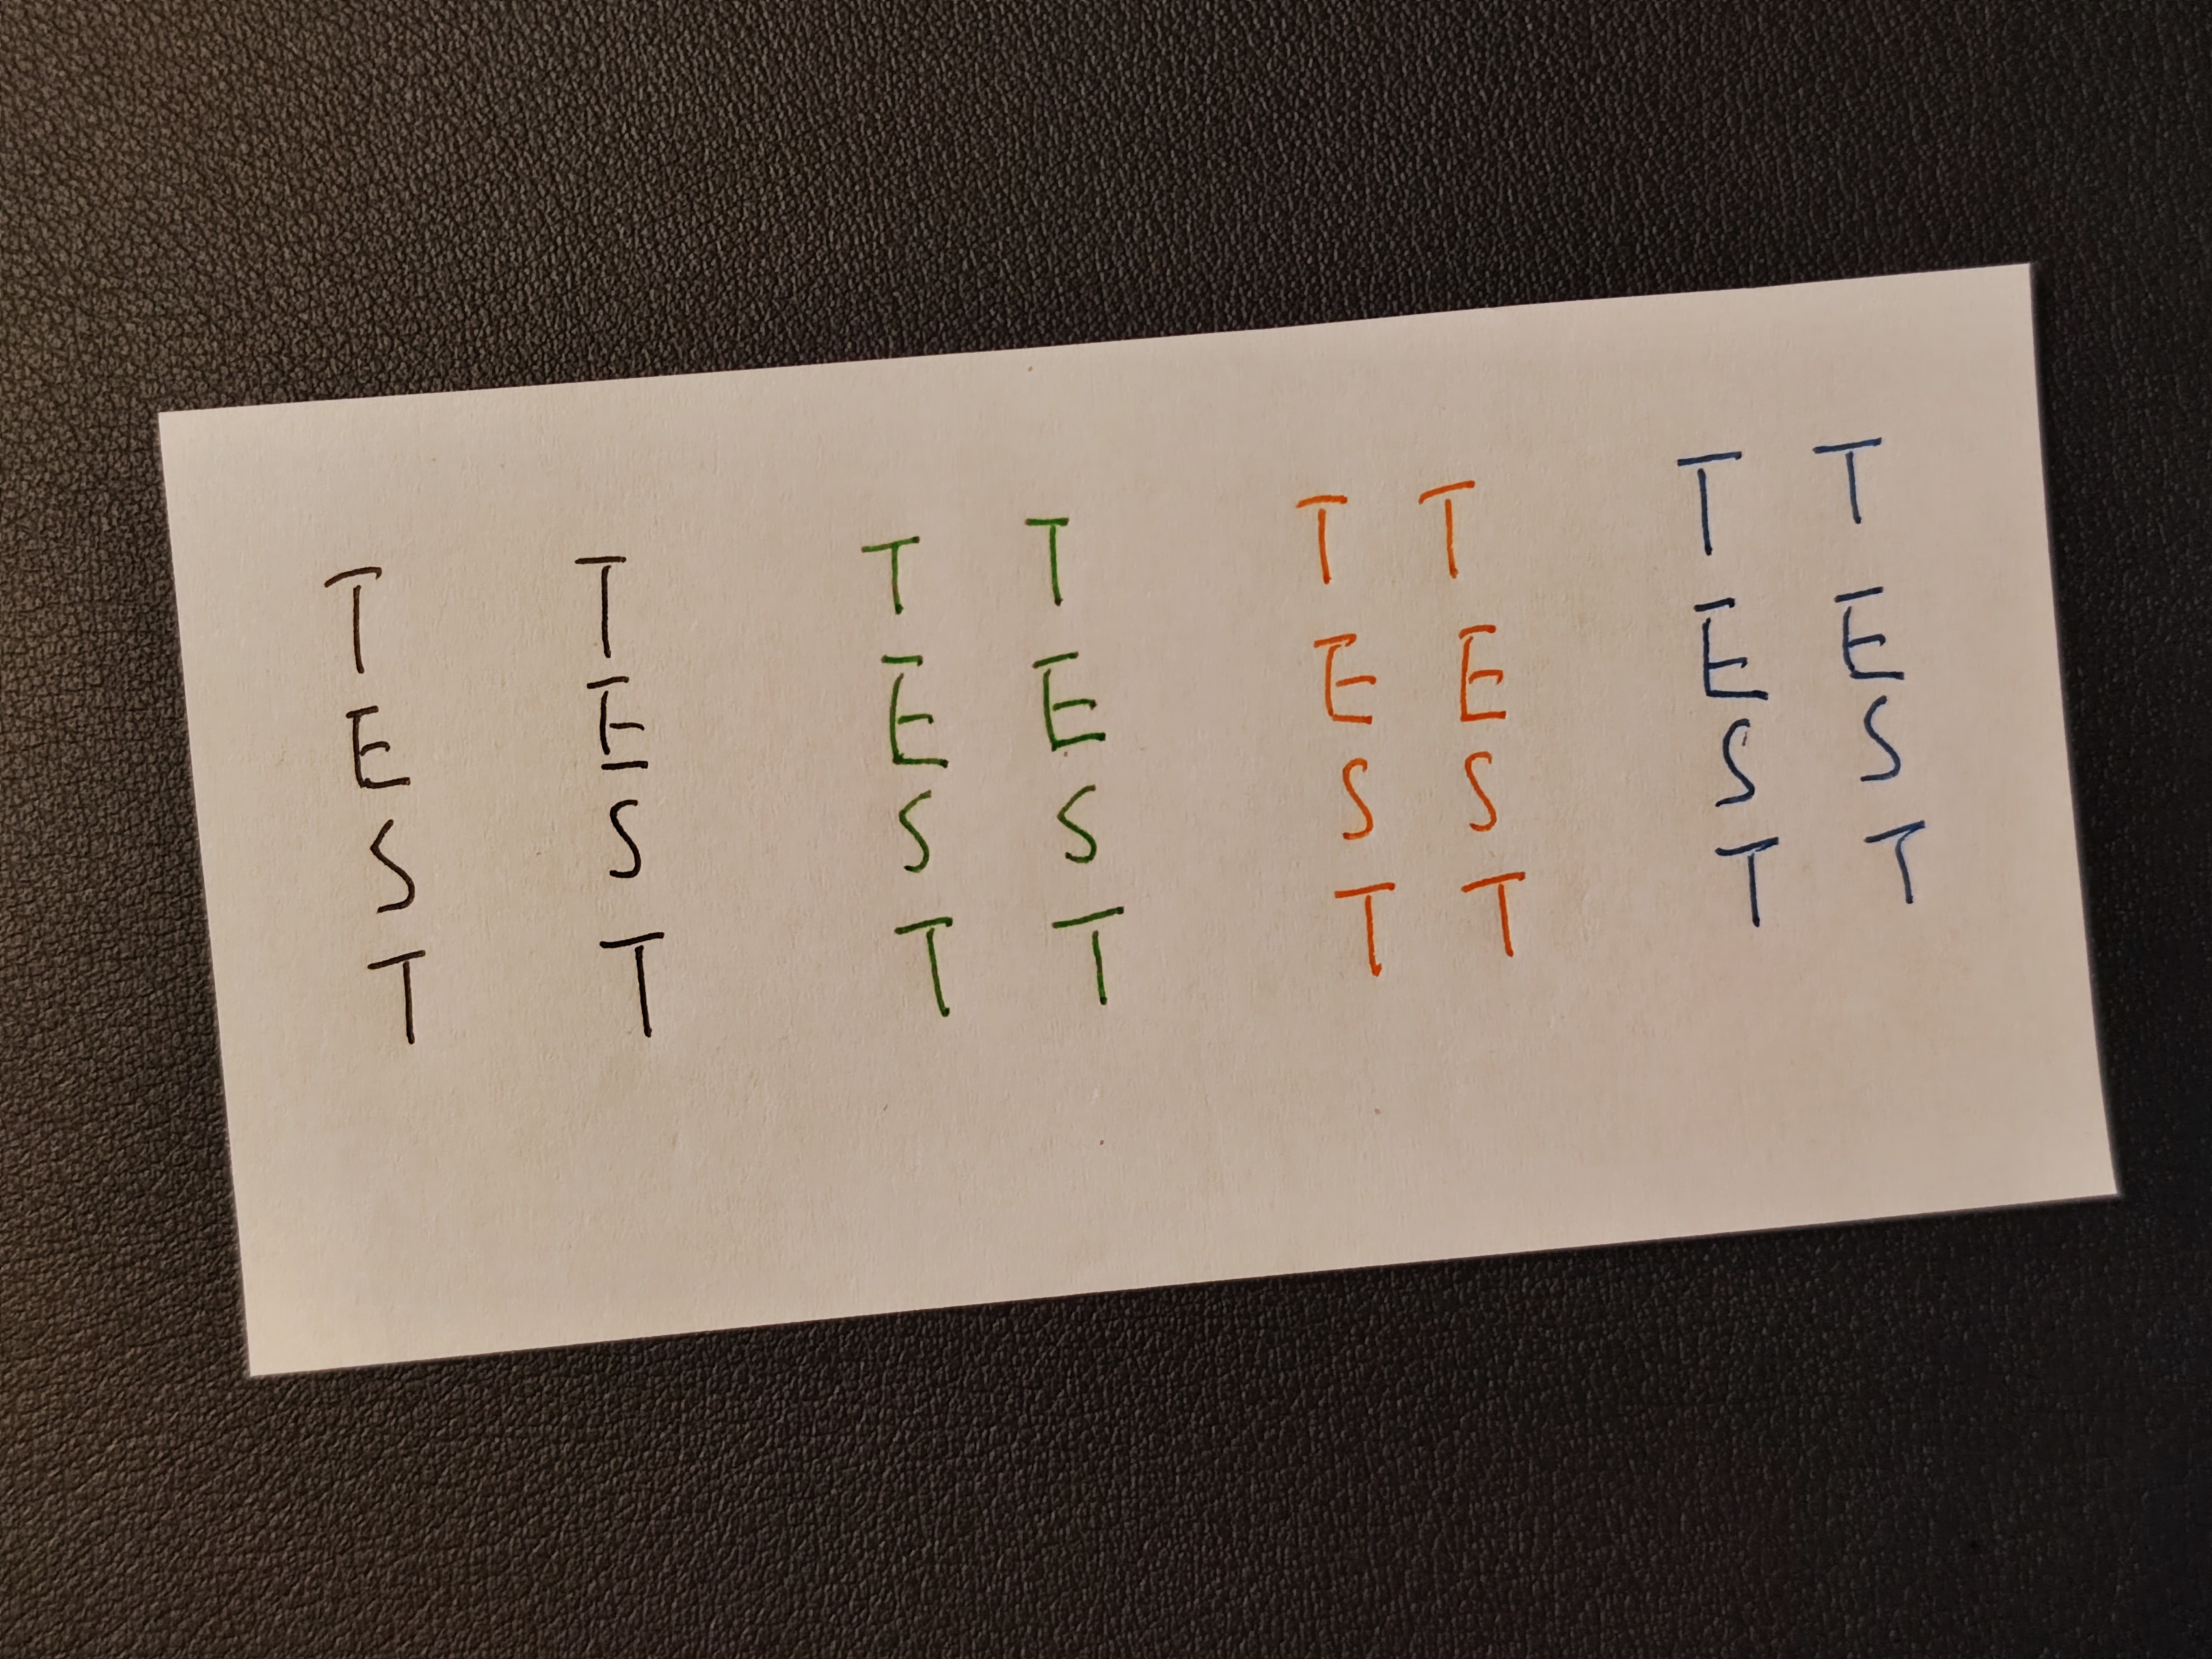 TEST
TEST
TEST
TEST
TEST
TEST
TEST
TEST